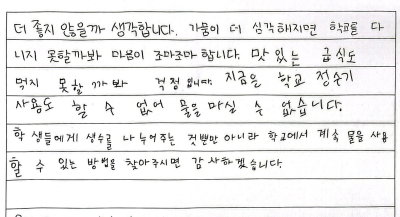 더 좋지 않을까 생각합니다. 가뭄이 더 심각해지면 학교를 다
니지 못할까봐 마음이 조마조마 합니다. 맛있는 급식도
먹지 못할까 봐 걱정됩니다. 지금은 학교 정수기
사용도 할 수 없어 물을 마실 수 없습니다.
학생들에게 생수를 나누어주는 것뿐만 아니라 학교에서 계속 물을 사용
할 수 있는 방법을 찾아주시면 감사하겠습니다.